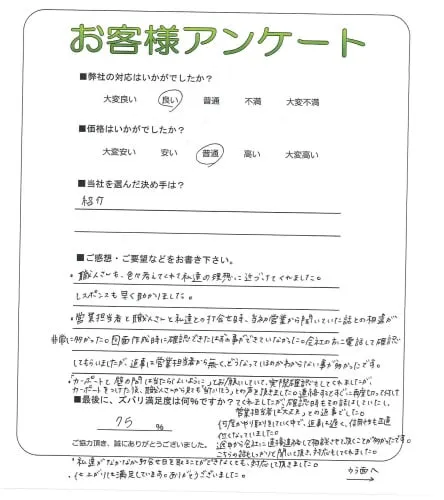 お客様アンケート
■弊社の対応はいかがでしたか？
大変良い 良い 普通 不満 大変不満
■価格はいかがでしたか？
大変安い 安い 普通 高い 大変高い
■当社を選んだ決め手は？
紹介
■ご感想・ご要望などをお書き下さい。
・職人さんも、色々考えてくれて私達の理想に近づけてくれました。
レスポンスも早く助かりました。
・営業担当者と職人さんと私達との打合せ時、当初営業から聞いていた話との相違が
非常に多かった。図面作成時に確認できたはずの事ができていなかった。会社の方に電話して確認
してもらいましたが、返事は営業担当者から無く、どうなっているのかわからない事が多かったです。
・「カーポートと壁の間は当たらないように」とお願いしていて、実際確認もしてくれましたが、
カーポートをつけた後、職人さんから
■最後に、ズバリ満足度は何％ですか？
営業担当者は大丈夫との返事でした。
何度かやり取りをしていく中で、返事は遅く、信用も正直
低くなっていました。
75 %
ご協力頂き、誠にありがとうございました。
こちらの話もしっかりと聞いて頂き、対応もしてくれました。
・私達がなかなか打合せ日を取ることができなくても、対応して頂きました。
・仕上がりにも満足しています。ありがとうございました。